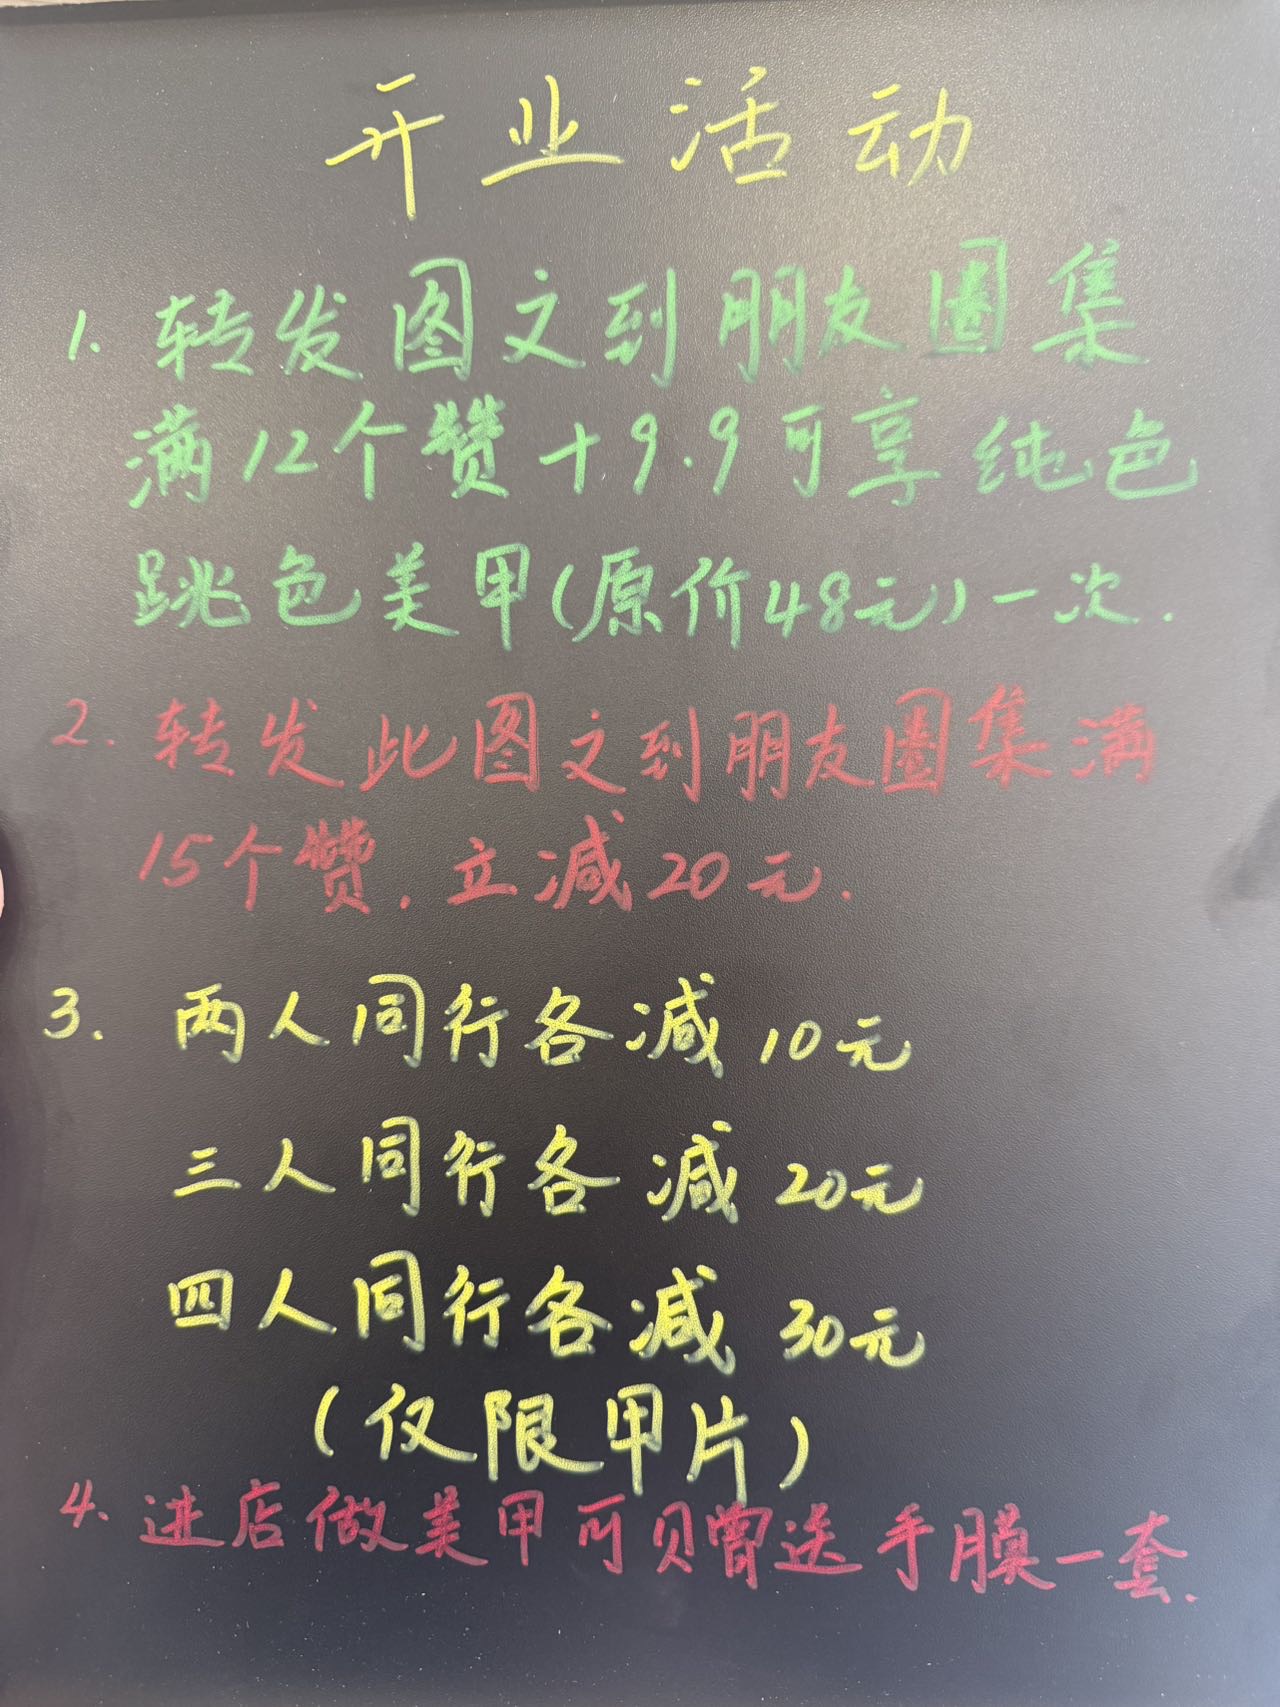 开业活动
1. 转发图文到朋友圈集
满12个赞+9.9可享纯色
跳色美甲(原价48元)一次.
2. 转发此图文到朋友圈集满
15个赞.立减20元.
3. 两人同行各减10元
三人同行各减20元
四人同行各减30元
(仅限甲片)
4. 进店做美甲可赠送手膜一套.